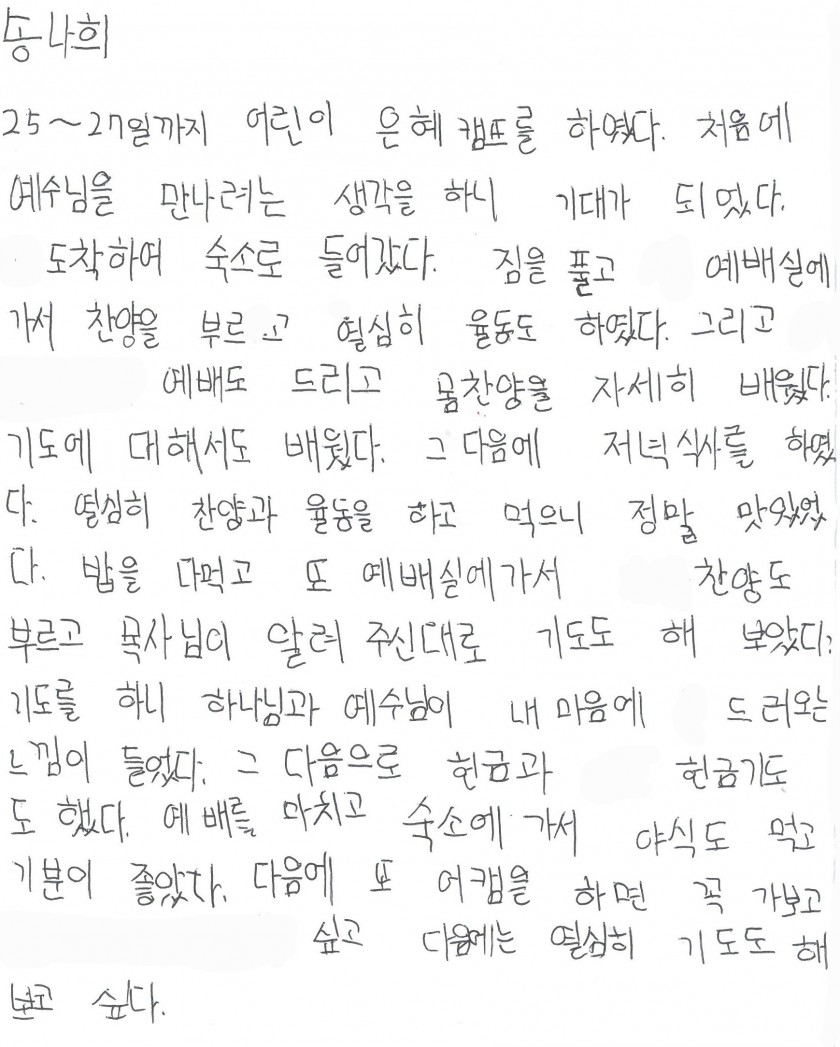 송나희
25~27일까지 어린이 은혜 캠프를 하였다. 처음에
예수님을 만나려는 생각을 하니 기대가 되었다.
도착하여 숙소로 들어갔다. 짐을 풀고 예배실에
가서 찬양을 부르고 열심히 율동도 하였다. 그리고
예배도 드리고 몸찬양을 자세히 배웠다.
기도에 대해서도 배웠다. 그 다음에 저녁식사를 하였
다. 열심히 찬양과 율동을 하고 먹으니 정말 맛있었
다. 밥을 다먹고 또 예배실에가서 찬양도
부르고 목사님이 알려 주신대로 기도도 해 보았다.
기도를 하니 하나님과 예수님이 내 마음에 드러오는
느낌이 들었다. 그 다음으로 헌금과 헌금기도
도 했다. 예배를 마치고 숙소에 가서 야식도 먹고
기분이 좋았다. 다음에 또 어캠을 하면 꼭 가보고
싶고 다음에는 열심히 기도도 해
보고 싶다.